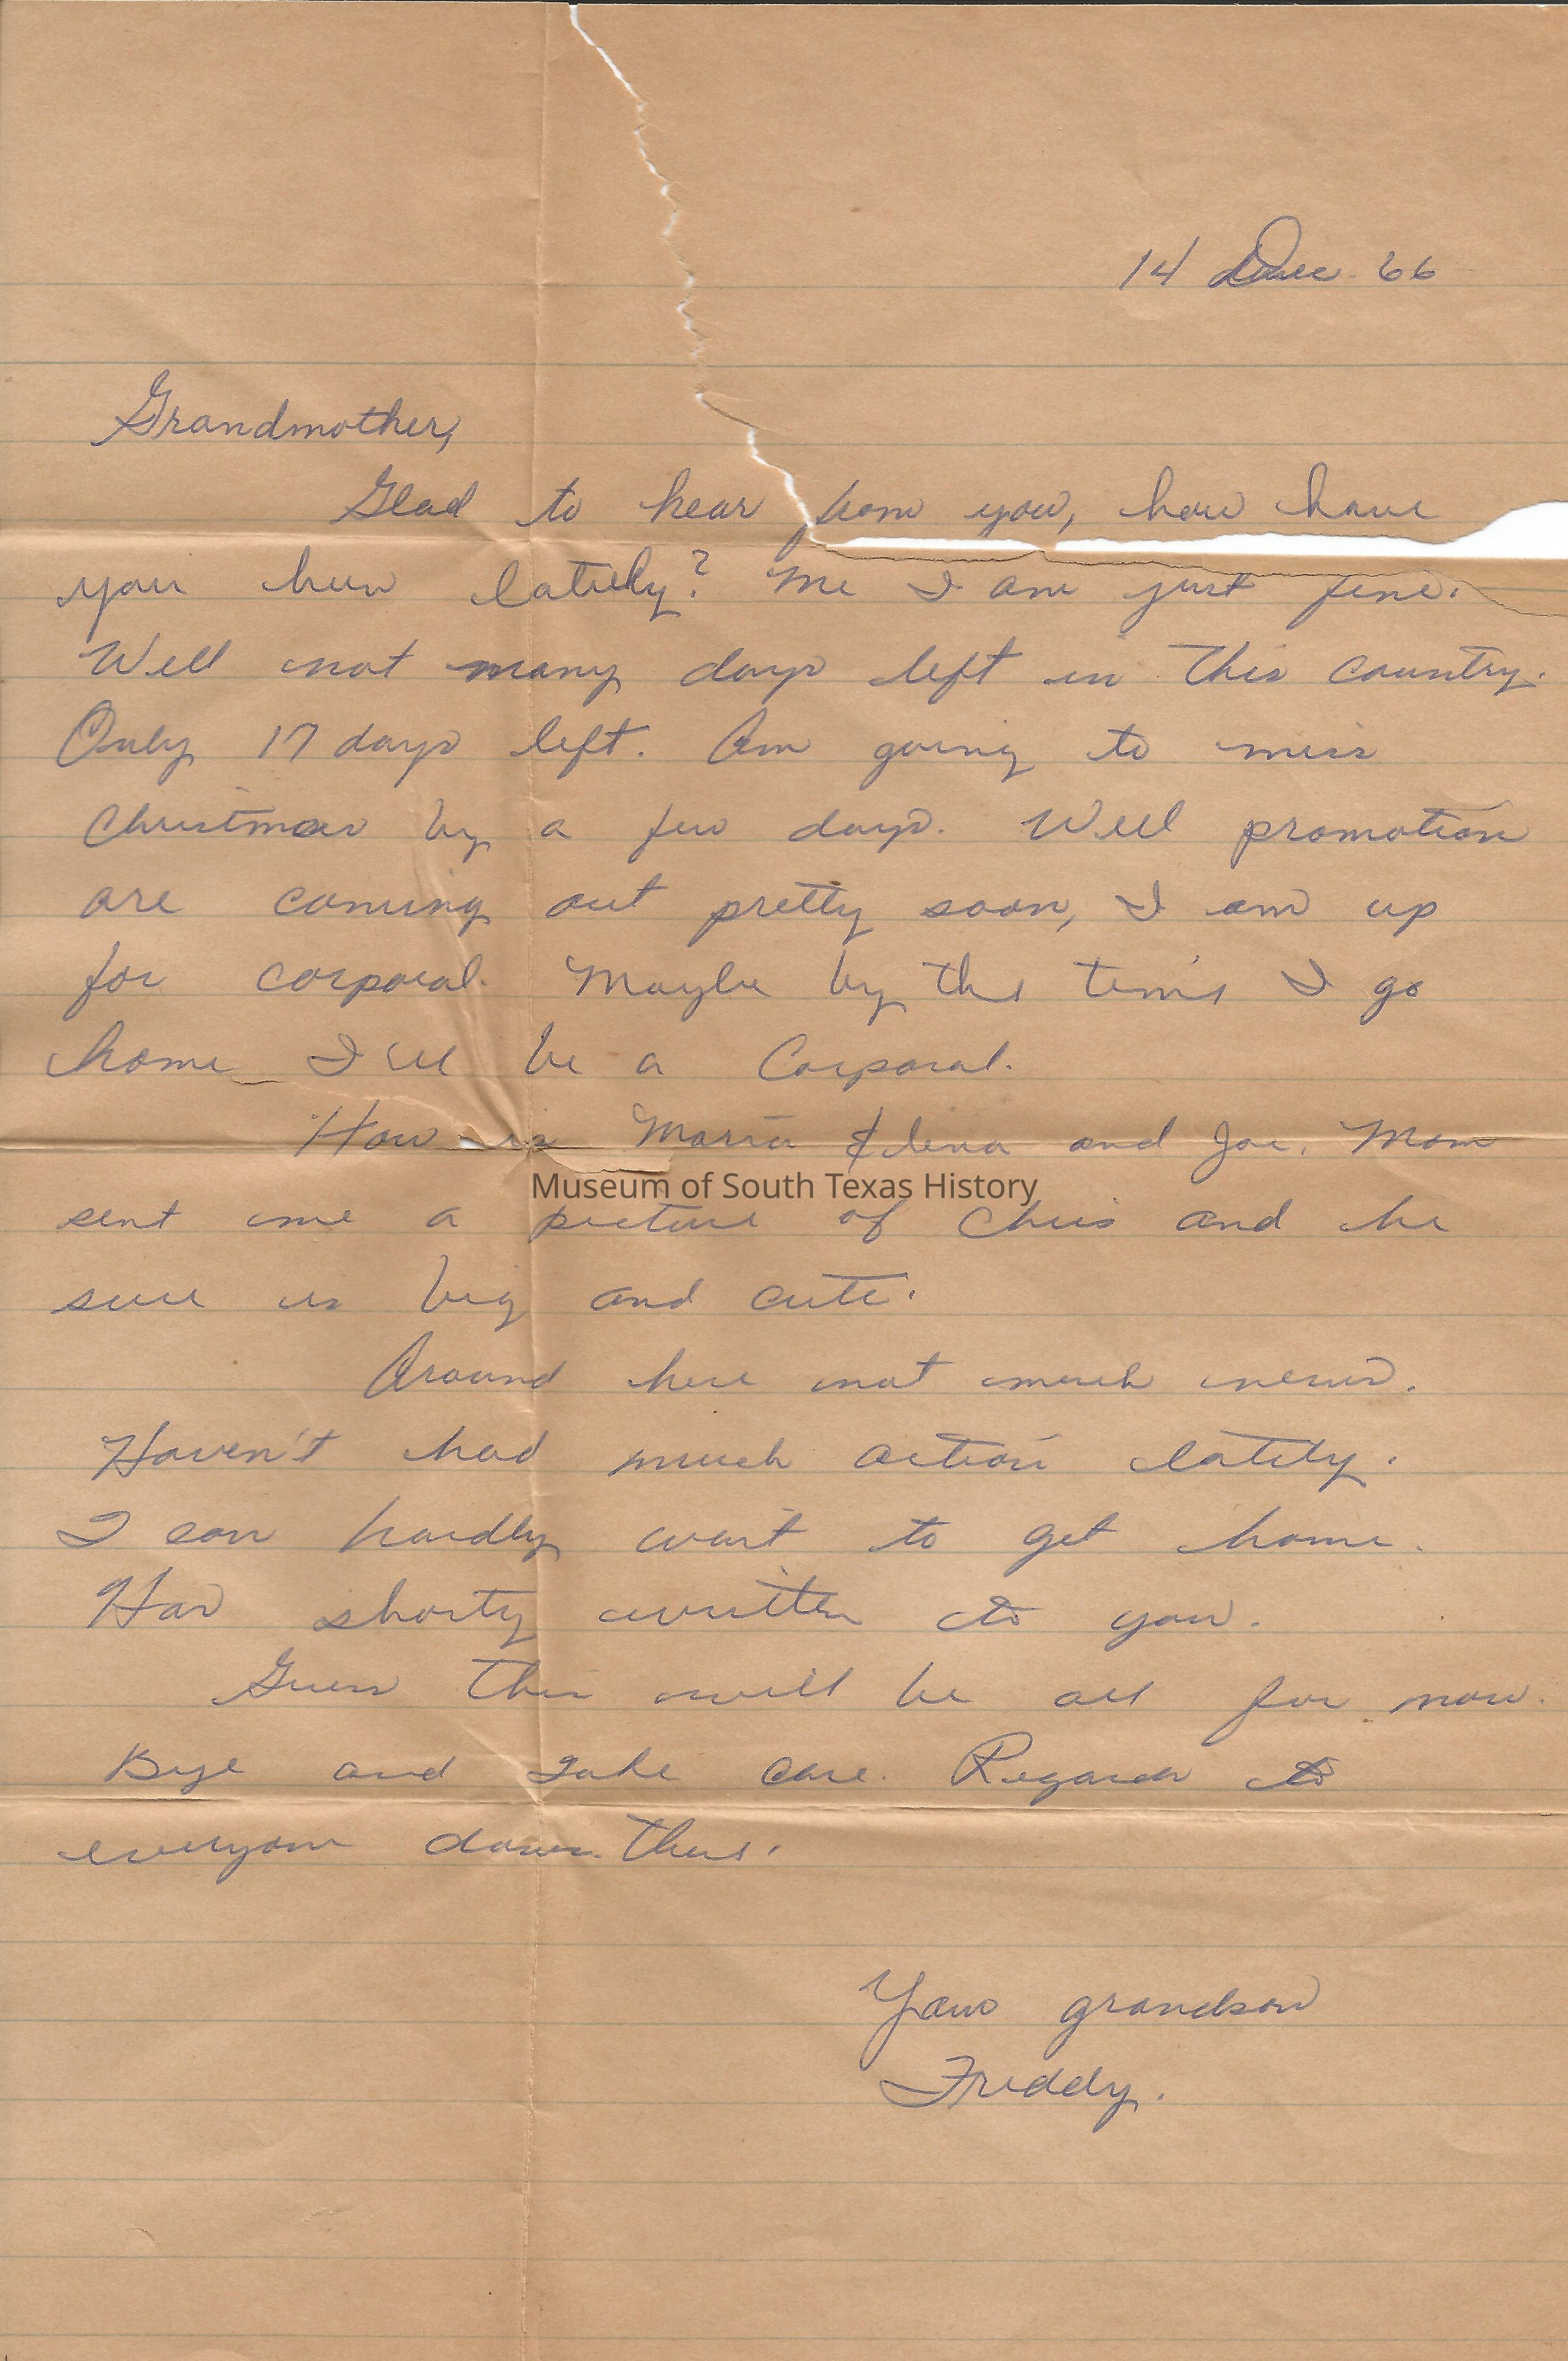 14 Dec. 66
Grandmother,
Glad to hear from you, how have
you been lately? Me I am just fine.
Well not many days left in this country.
Only 17 days left. Am going to miss
Christmas by a few days. Well promotion
are coming out pretty soon, I am up
for corporal. Maybe by the time I go
home I'll be a Corporal.
How is Maria Elena and Joe. Mom
Museum of South Texas History
sent me a picture of Chris and he
sure is big and cute.
Around here not much news.
Haven't had much action lately.
I can hardly wait to get home.
Has shorty written to you.
Guess this will be all for now.
Bye and take care. Regards to
everyone down there.
Your grandson
Freddy.